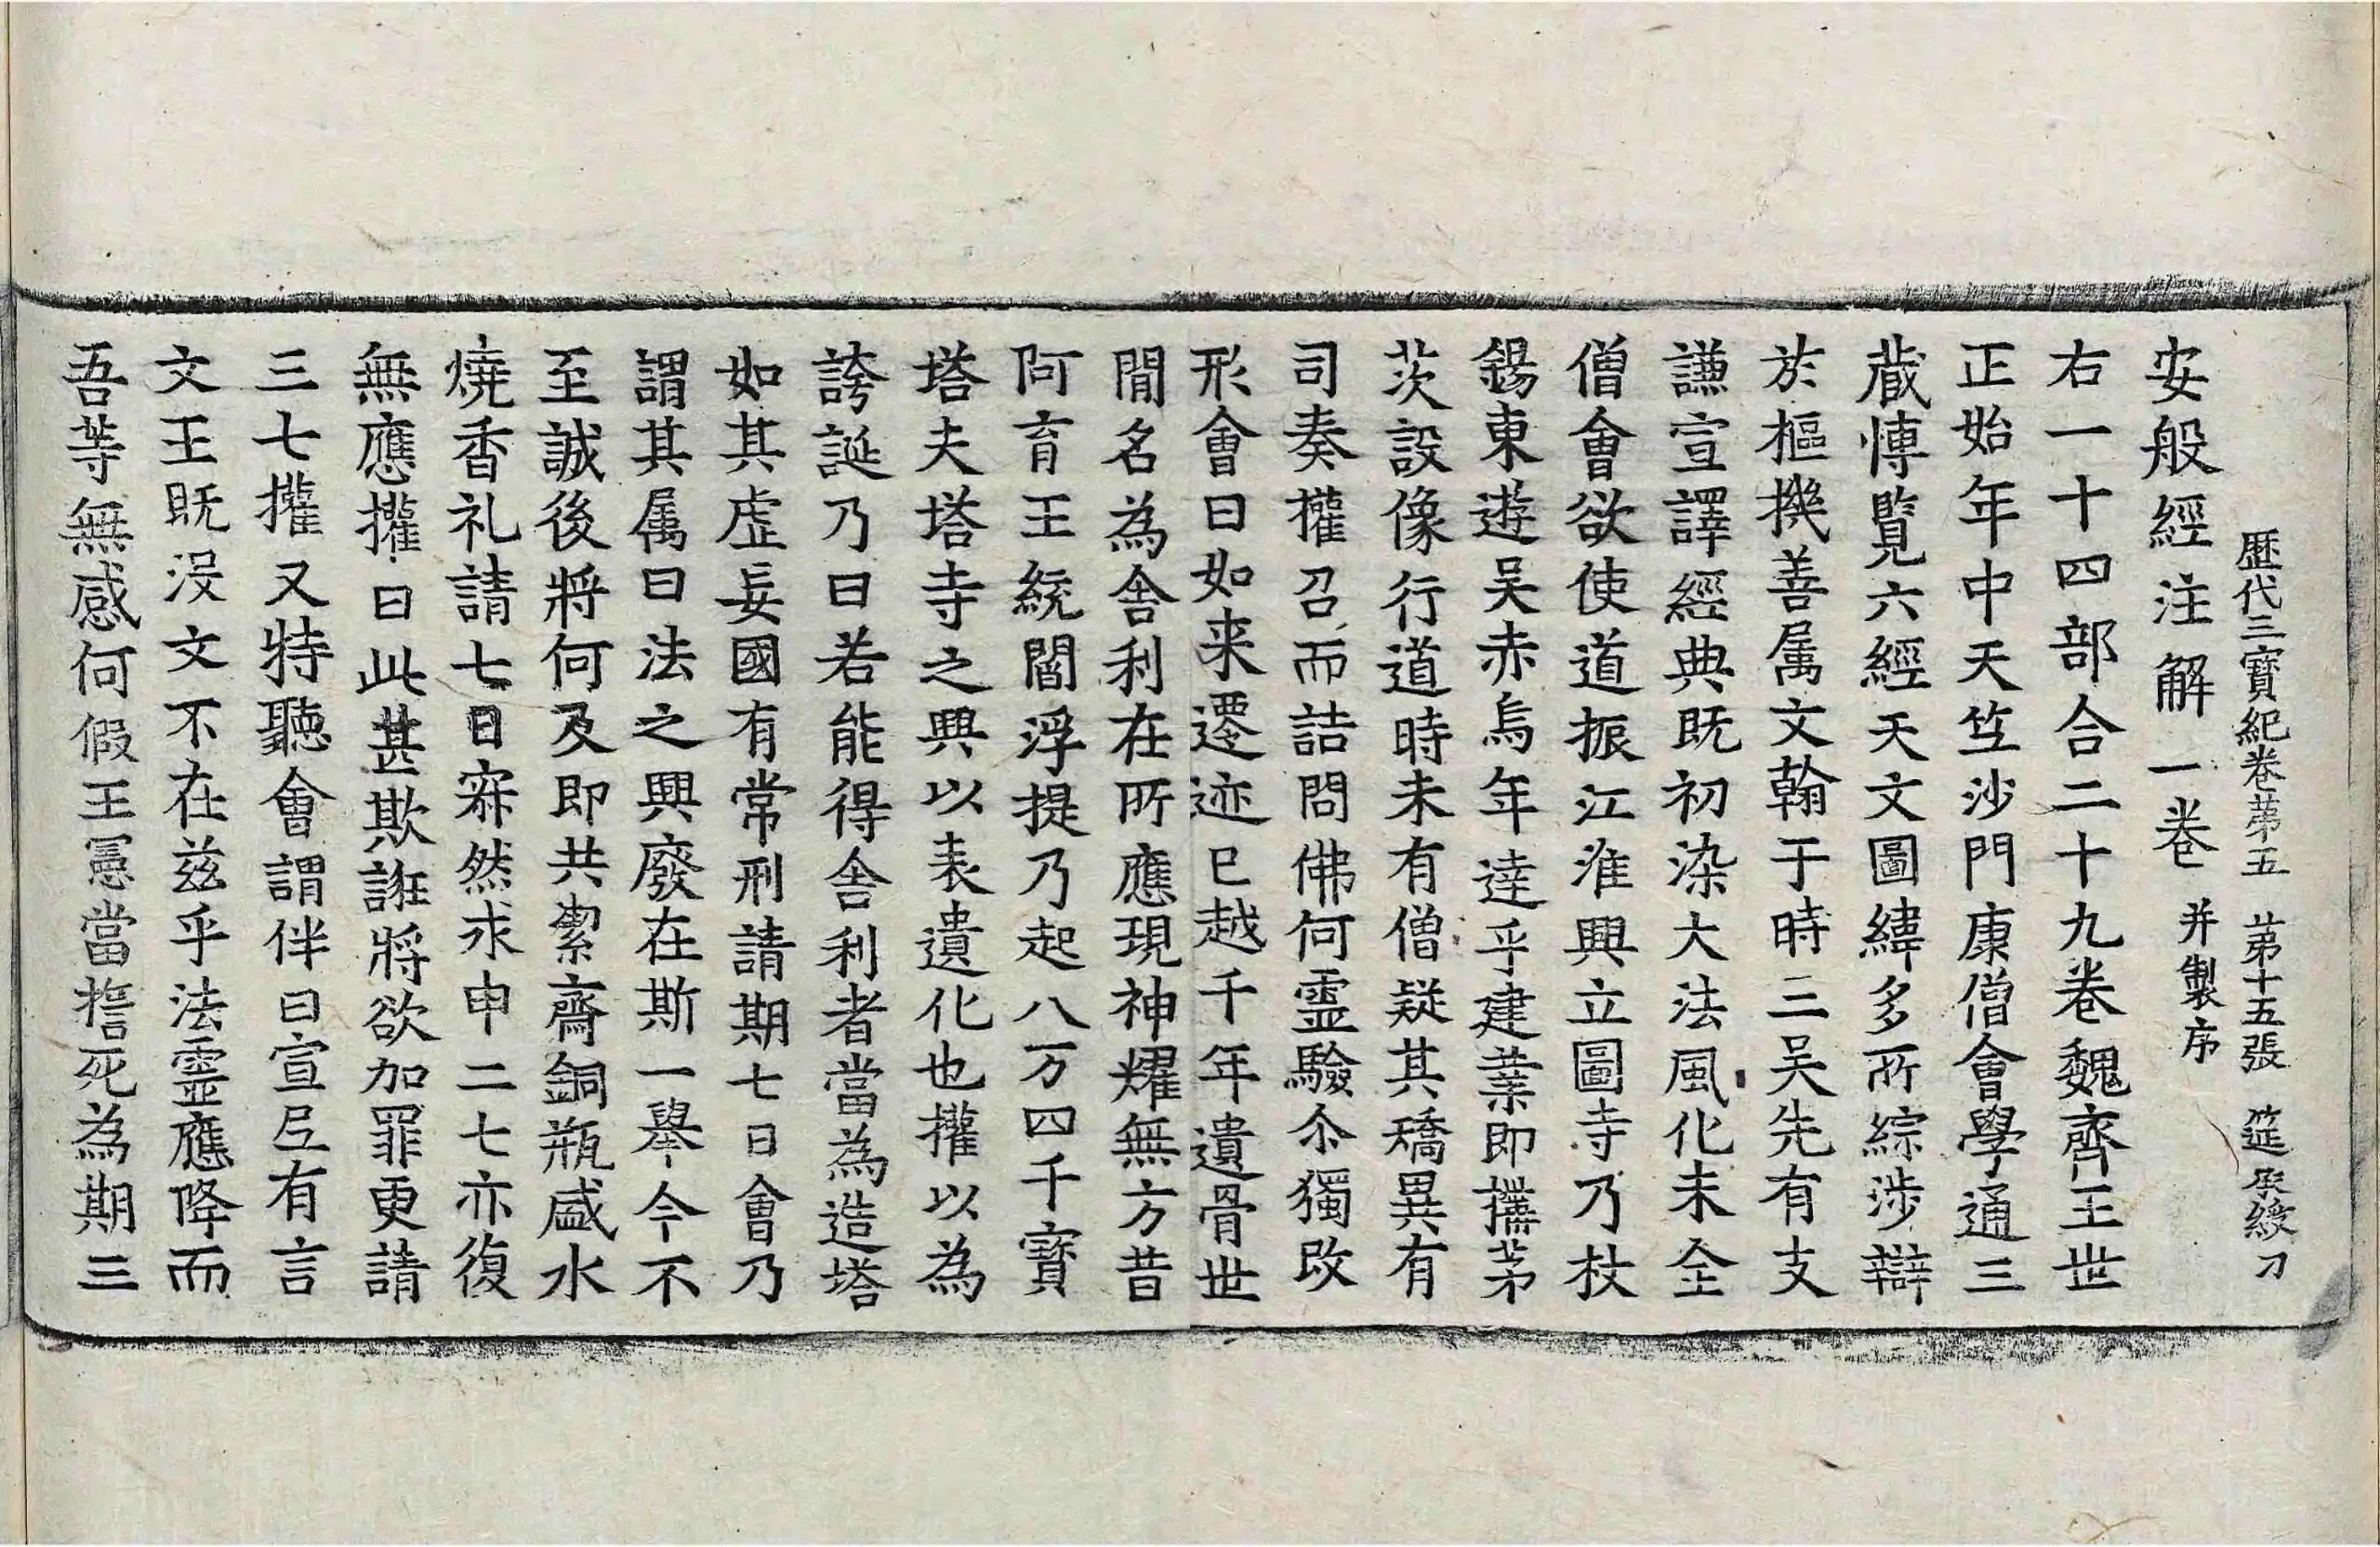 歷代三寶紀卷第五　第十五張　筵　刀
安般經注解一卷并製序
右一十四部合二十九卷魏齊王世
正始年中天竺沙門康僧會學通三
藏博覽六經天文圖緯多所綜涉辯
於樞機善属文翰于時三吴先有支
謙宣譯經典既初染大法風化未全
僧會欲使道振江淮興立圖寺乃杖
錫東遊吴赤烏年達乎建業即搆茅
茨設像行道時未有僧疑其矯異有
司奏權召而詰問佛何靈驗尒獨改
形會曰如来遷迹已越千年遺骨世
間名為舍利在所應現神耀無方昔
阿育王統閻浮提乃起八万四千寶
塔夫塔寺之興以表遺化也權以為
誇誕乃曰若能得舍利者當為造塔
如其虛妄國有常刑請期七日會乃
謂其属曰法之興廢在斯一舉今不
至誠後將何及即共潔齋銅瓶盛水
燒香礼請七日寂然求申二七亦復
無應權曰此甚欺誑將欲加罪更請
三七權又特聽會謂伴曰宣尼有言
文王既沒文不在兹乎法靈應降而
吾等無感何假王憲當誓死為期三